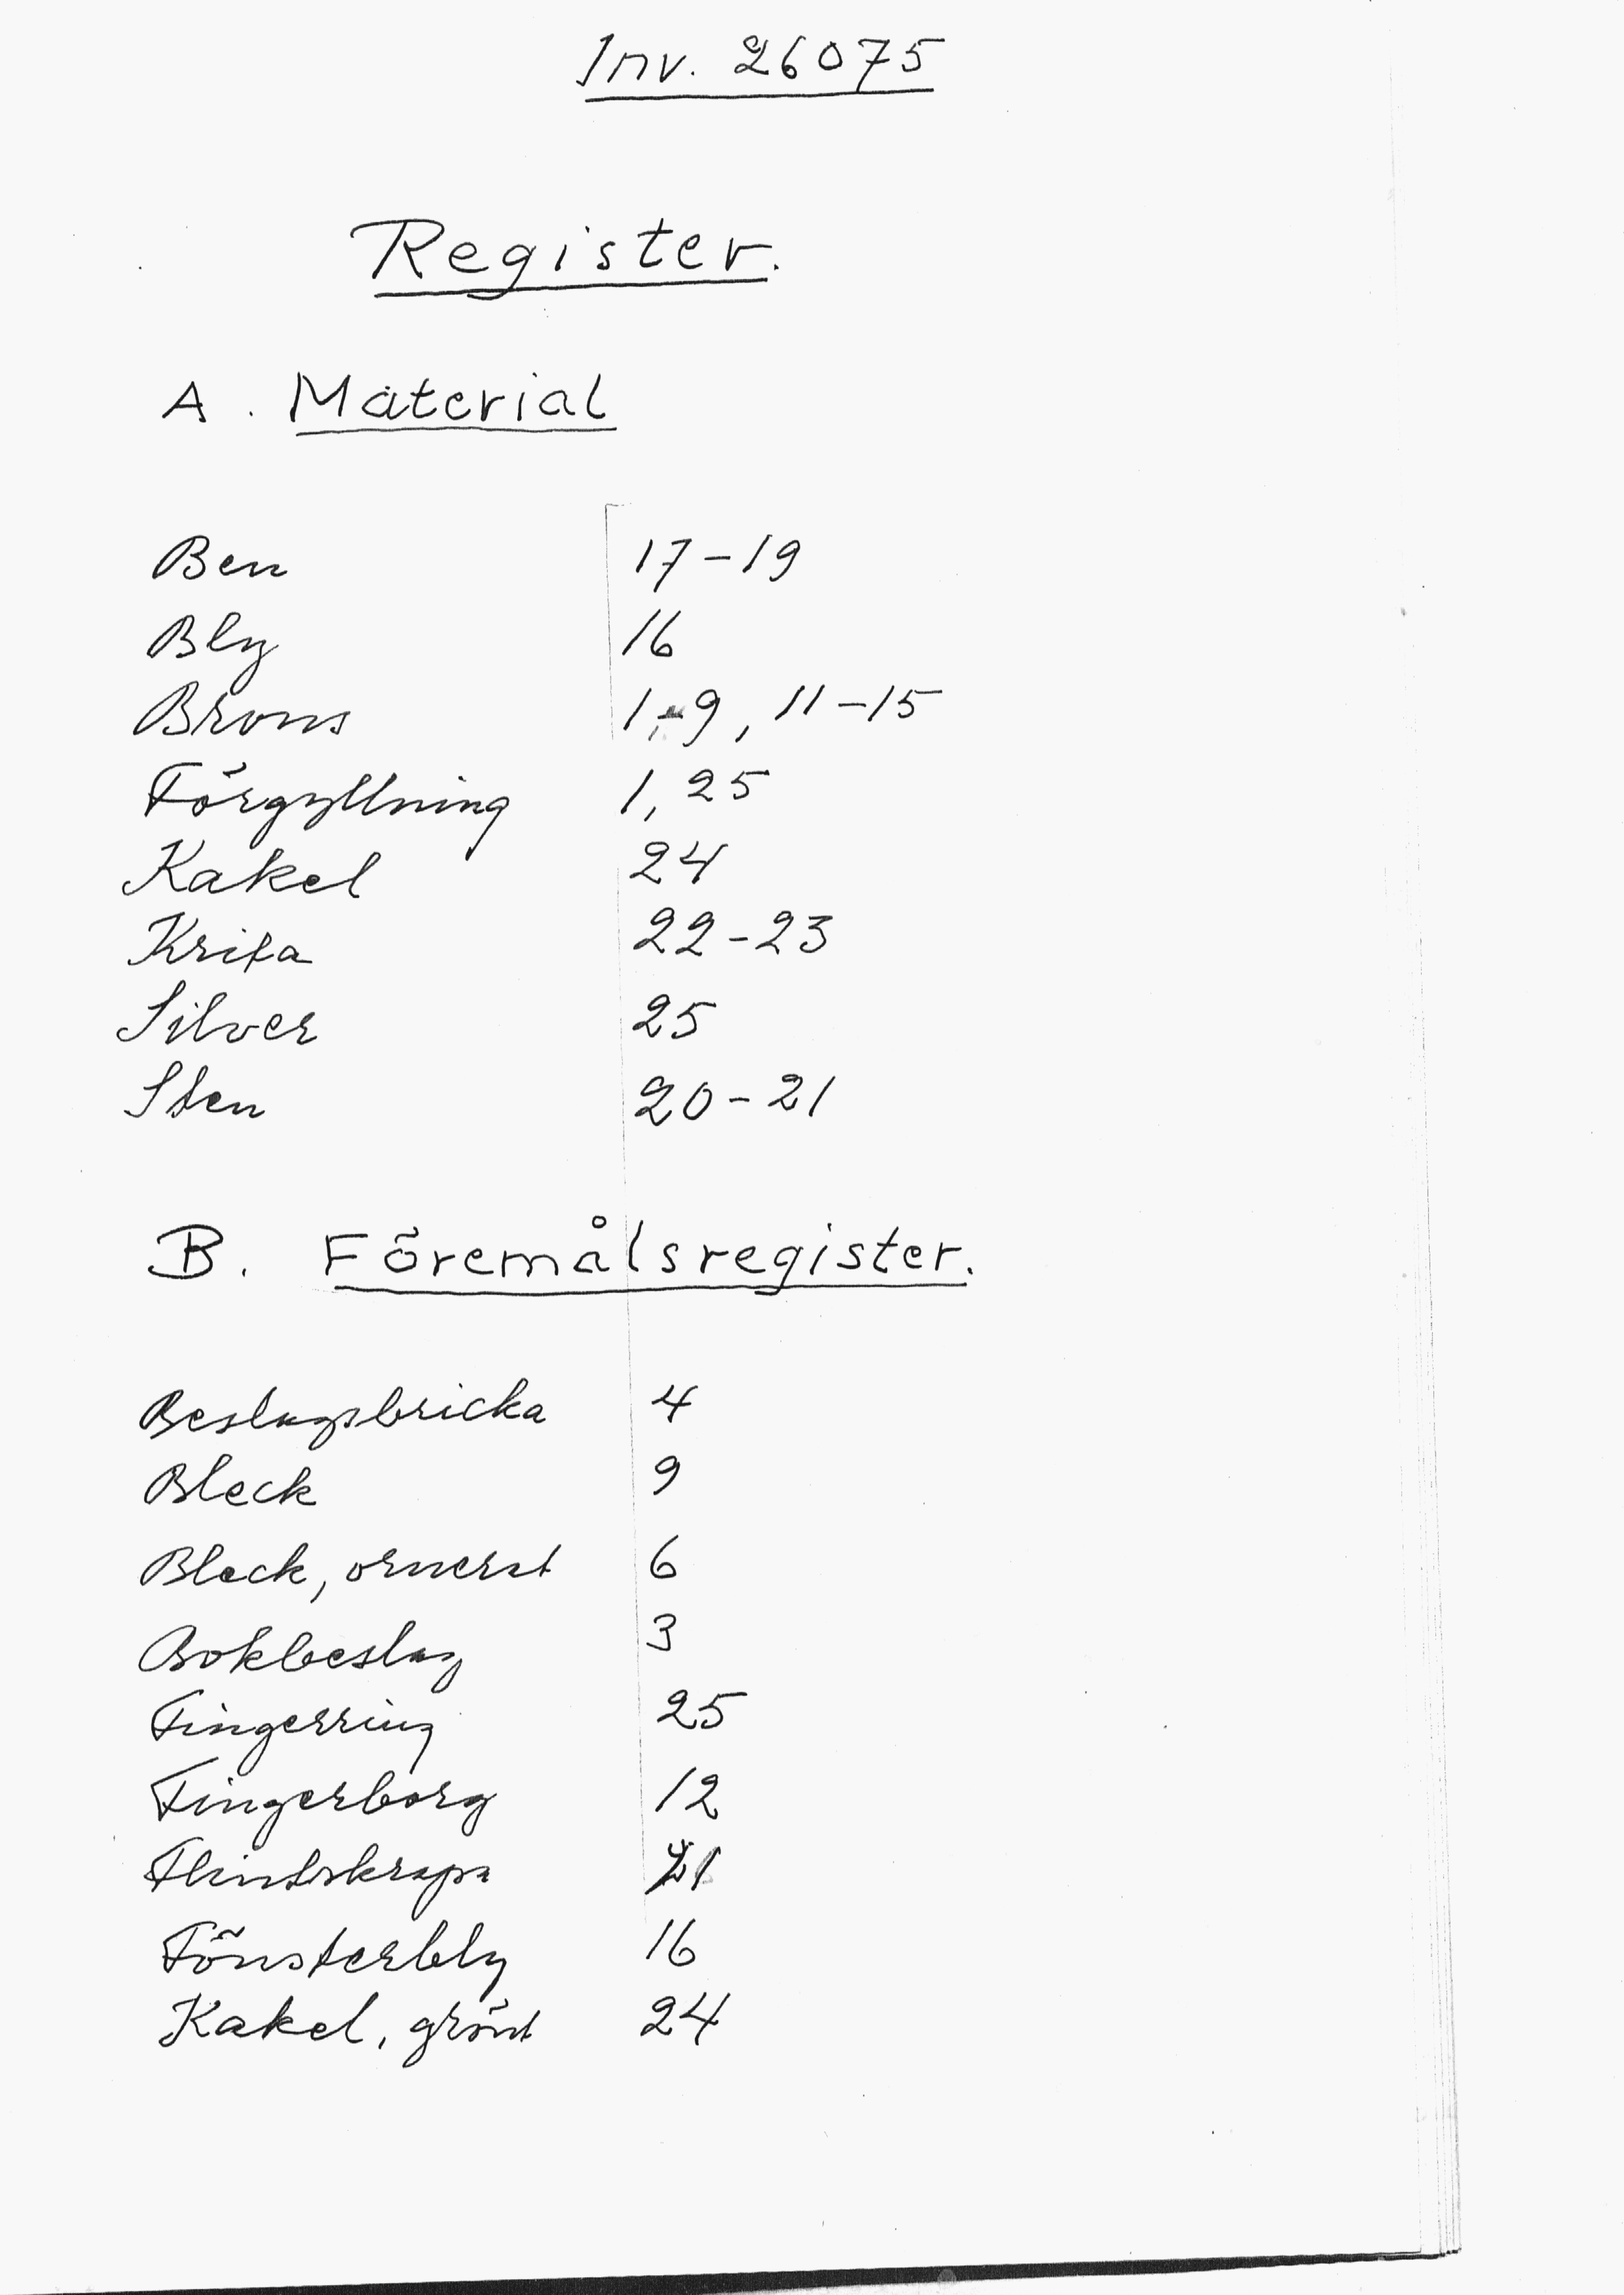 Inv. 26075
Register.
A. Material
Ben 17-19
Bly 16
Brons 1-9, 11-15
Förgyllning 1, 25
Kakel 24
Krita 22-23
Silver 25
Sten 20-21
B. Föremålsregister.
Beslagsbricka 4
Bleck 9
Bleck, ornerat 6
Bokbeslag 3
Fingerring 25
Fingerborg 12
Flintskrapa
Fönsterbly 16
Kakel, grönt 24